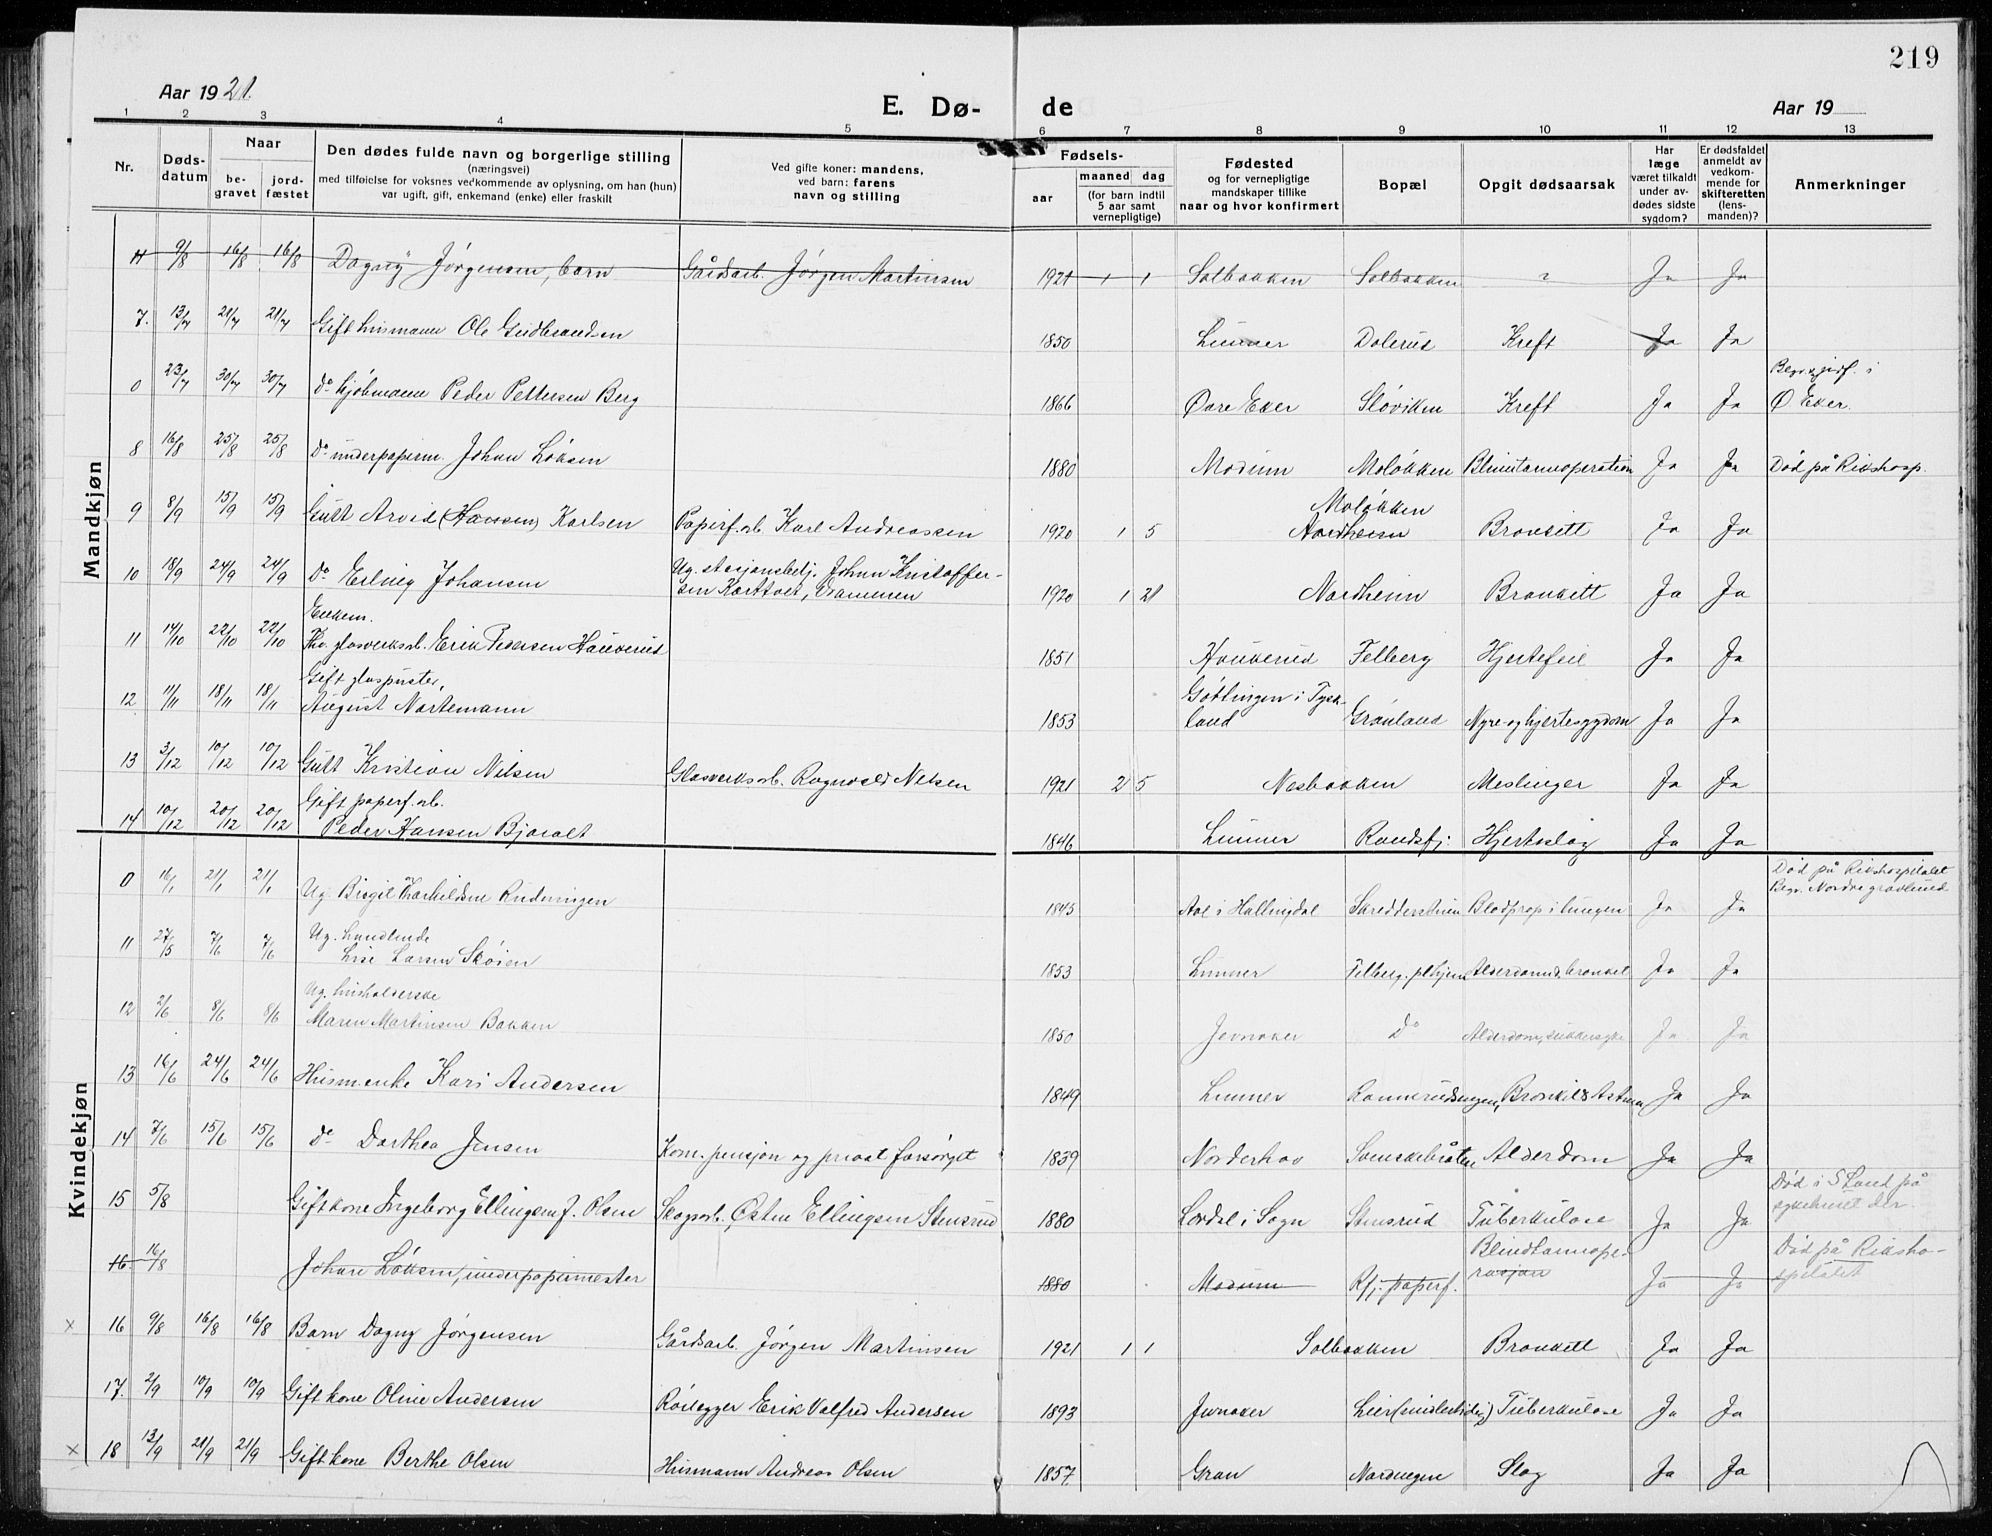 219
Aar 1921.
E. Dø-
de
Aar 19
1 2 3 4 5 6 7 8 9 10 11 12 13
Nr.
Døds-
datum
Naar
be-
gravet
jord-
fæstet
Den dødes fulde navn og borgerlige stilling
(næringsvei)
med tilføielse for voksnes vedkommende av oplysning, om han (hun)
var ugift, gift, enkemand (enke) eller fraskilt
Ved gifte koner: mandens,
ved barn: farens
navn og stilling
Fødsels-
aar
maaned dag
(for barn indtil
5 aar samt
vernepligtige)
Fødested
og for vernepligtige
mandskaper tillike
naar og hvor konfirmert
Bopæl
Opgit dødsaarsak
Har
læge
været tilkaldt
under av-
dødes sidste
sygdom?
Er dødsfaldet
anmeldt av
vedkom-
mende for
skifteretten
(lens-
manden)?
Anmerkninger
Mandkjøn
11 9/8 16/8 16/8 Dagny Jørgensen, barn Gårdsarb. Jørgen Martinsen 1921 1 1 Solbakken Solbakken ? Ja Ja
7. 13/7 21/7 21/7 Gift husmann Ole Gudbrandsen 1850 Lunner Dolerud Kreft Ja Ja
0 23/7 30/7 30/7 Do kjøbmann Peder Pettersen Berg 1866 Øvre Eker Sløviken Kreft Ja Ja Begr. jordf. i
Ø Eker.
8 16/8 25/8 25/8 Do underpapirm. Johan Løksen 1880 Modum Moløkken Blindtarmoperation Ja Ja Død på Rikshosp.
9 8/9 15/9 15/9 Gutt Arvid (Hansen) Karlsen Papirf.arb. Karl Andreassen 1920 1 5 Moløkken
Nordheim Bronkitt Ja Ja
10 18/9 24/9 24/9 Do Erling Johansen Ug. stasjonsbetj. Johan Kristoffer-
sen Korttvet, Drammen 1920 1 21 Nordheim Bronkitt Ja Ja
Enkem.
11 14/10 22/10 22/10 Fhv. glasverksarb. Erik Pedersen Haukerud 1851 Haukerud Felberg Hjertefeil Ja Ja
Gift glaspuster,
12 11/11 18/11 18/11 August Nortemann 1853 Gøttingen i Tysk-
land Grønland Nyre- og hjertesygdom Ja Ja
13 3/12 10/12 10/12 Gutt Kristian Nilsen Glasverksarb. Ragnvald Nilsen 1921 2 5 Nesbakken Meslinger Ja Ja
Gift papirf.arb.
14 10/12 20/12 20/12 Peder Hansen Bjoralt 1846 Lunner Randsfj. Hjerteslag Ja Ja
Kvindekjøn
0 16/1 21/1 21/1 Ug. Birgit Torkildsen Rudningen 1845 Aal i Hallingdal Skredderstuen Blodprop i lungen Ja Ja Død på Rikshospitalet
Begr. Nordre gravlund
Ug. handlende
11 27/5 7/6 7/6 Lise Larsen Skøien 1853 Lunner Felberg, pl.hjem Alderdom & bronkit Ja Ja
Ug. husholderske
12 2/6 8/6 8/6 Maren Martinsen Bakken 1850 Jevnaker Do Alderdom, sukkersyke Ja Ja
13 16/6 24/6 24/6 Husm.enke Kari Andersen 1849 Lunner Rannerudengen, Bronkit & Astma Ja Ja
14 7/6 15/6 15/6 Do Dorthea Jensen Kom. pensjon og privat forsørget 1839 Norderhov Svenskebråten Alderdom Ja Ja
15 5/8 Gift kone Ingeborg Ellingsen f. Olsen Skogsarb. Østen Ellingsen Stensrud 1880 Lærdal i Sogn Stensrud Tuberkulose Ja Ja Død i S Land på
sykehuset der.
16 16/8 Johan Løksen, underpapirmester 1880 Modum Rfj. papirf. Blindtarmope-
rasjon Ja Ja Død på Riksho-
spitalet
x 16 9/8 16/8 16/8 Barn Dagny Jørgensen Gårdsarb. Jørgen Martinsen 1921 1 1 Solbakken Bronkitt Ja Ja
17. 2/9 10/9 10/9 Gift kone Oline Andersen Rørlegger Erik Valfred Andersen 1893 Jevnaker Lier (midlertidig) Tuberkulose Ja Ja
x 18 13/9 21/9 21/9 Gift kone Berthe Olsen Husmann Andreas Olsen 1857 Gran Nordengen Slag Ja Ja